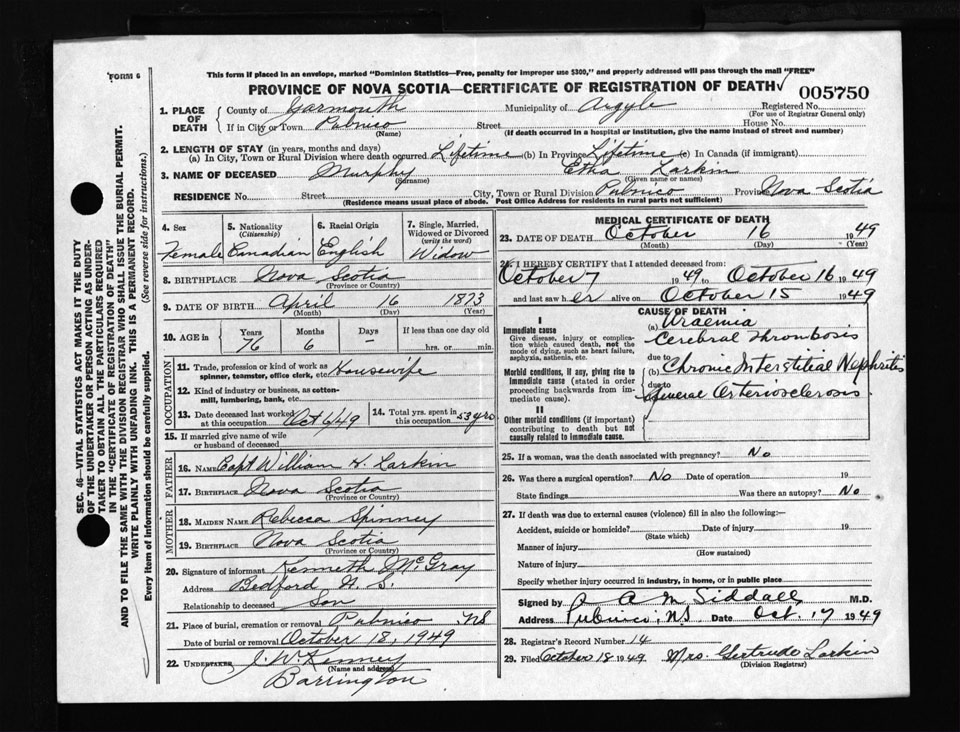 FORM 6
This form if placed in an envelope, marked "Dominion Statistics—Free, penalty for improper use $300," and properly addressed will pass through the mail "FREE"
PROVINCE OF NOVA SCOTIA—CERTIFICATE OF REGISTRATION OF DEATH 005750
1. PLACE OF DEATH
County of Yarmouth Municipality of Argyle Registered No.
(For use of Registrar General only)
If in City or Town Pubnico Street House No.
(Name) (If death occurred in a hospital or institution, give the name instead of street and number)
2. LENGTH OF STAY (in years, months and days)
(a) In City, Town or Rural Division where death occurred Lifetime (b) In Province Lifetime (c) In Canada (if immigrant)
3. NAME OF DECEASED Murphy Etha Larkin
(Surname) (Given name or names)
RESIDENCE No. Street City, Town or Rural Division Pubnico Province Nova Scotia
(Residence means usual place of abode. Post Office Address for residents in rural parts not sufficient)
4. Sex Female
5. Nationality (Citizenship) Canadian
6. Racial Origin English
7. Single, Married, Widowed or Divorced (write the word) Widow
8. BIRTHPLACE Nova Scotia
(Province or Country)
9. DATE OF BIRTH April 16 1873
(Month) (Day) (Year)
10. AGE in Years Months Days If less than one day old
76 6 - hrs. or min.
OCCUPATION
11. Trade, profession or kind of work as spinner, teamster, office clerk, etc. Housewife
12. Kind of industry or business, as cotton-mill, lumbering, bank, etc.
13. Date deceased last worked at this occupation Oct 6/49
14. Total yrs. spent in this occupation 53 yrs
15. If married give name of wife or husband of deceased
FATHER
16. NAME Capt William H. Larkin
17. Birthplace Nova Scotia
(Province or Country)
MOTHER
18. MAIDEN NAME Rebecca Spinney
19. Birthplace Nova Scotia
(Province or Country)
20. Signature of informant Kenneth McGray
Address Bedford N. S.
Relationship to deceased Son
21. Place of burial, cremation or removal Pubnico NS
Date of burial or removal October 18, 1949
22. UNDERTAKER J. W. Kenney
(Name and address)
Barrington
MEDICAL CERTIFICATE OF DEATH
23. DATE OF DEATH October 16 1949
(Month) (Day) (Year)
24. I HEREBY CERTIFY that I attended deceased from:
October 7 1949 to October 16 1949
and last saw her alive on October 15 1949
CAUSE OF DEATH
I
Immediate cause
Give disease, injury or complication which caused death, not the mode of dying, such as heart failure, asphyxia, asthenia, etc.
Morbid conditions, if any, giving rise to immediate cause (stated in order proceeding backwards from immediate cause)
II
Other morbid conditions (if important) contributing to death but not causally related to immediate cause.
(a) Uraemia
Cerebral Thrombosis
due to
(b) Chronic Interstitial Nephritis
due to
General Arteriosclerosis
25. If a woman, was the death associated with pregnancy? No
26. Was there a surgical operation? No Date of operation 19
State findings Was there an autopsy? No
27. If death was due to external causes (violence) fill in also the following:—
Accident, suicide or homicide? Date of injury 19
(State which)
Manner of injury
(How sustained)
Nature of injury
Specify whether injury occurred in industry, in home, or in public place
Signed by A M Siddall M.D.
Address Pubnico, N.S Date Oct. 17 1949
28. Registrar's Record Number 14
29. Filed October 18 1949 Mrs. Gertrude Larkin
(Division Registrar)
SEC. 46—VITAL STATISTICS ACT MAKES IT THE DUTY
OF THE UNDERTAKER OR PERSON ACTING AS UNDER-
TAKER TO OBTAIN ALL THE PARTICULARS REQUIRED
IN THE "CERTIFICATE OF REGISTRATION OF DEATH"
AND TO FILE THE SAME WITH THE DIVISION REGISTRAR WHO SHALL ISSUE THE BURIAL PERMIT.
WRITE PLAINLY WITH UNFADING INK. THIS IS A PERMANENT RECORD.
Every item of information should be carefully supplied. (See reverse side for instructions.)